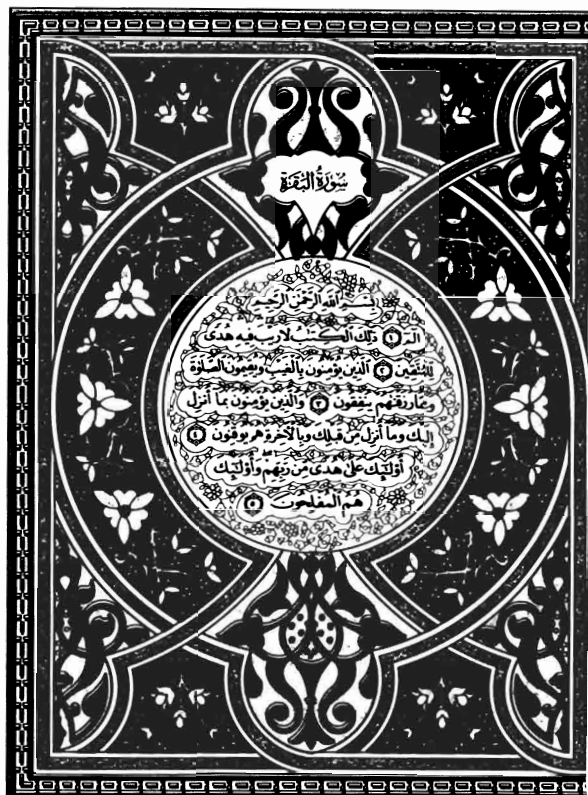 سُورَةُ الْبَقَرَةِ
بِسْمِ اللَّهِ الرَّحْمَٰنِ الرَّحِيمِ
الٓمٓ ١ ذَٰلِكَ الْكِتَٰبُ لَا رَيْبَ فِيهِ هُدًى
لِّلْمُتَّقِينَ ٢ الَّذِينَ يُؤْمِنُونَ بِالْغَيْبِ وَيُقِيمُونَ الصَّلَوٰةَ
وَمِمَّا رَزَقْنَٰهُمْ يُنفِقُونَ ٣ وَالَّذِينَ يُؤْمِنُونَ بِمَا أُنزِلَ
إِلَيْكَ وَمَا أُنزِلَ مِن قَبْلِكَ وَبِالْآخِرَةِ هُمْ يُوقِنُونَ ٤
أُوْلَٰٓئِكَ عَلَىٰ هُدًى مِّن رَّبِّهِمْ وَأُوْلَٰٓئِكَ
هُمُ الْمُفْلِحُونَ ٥